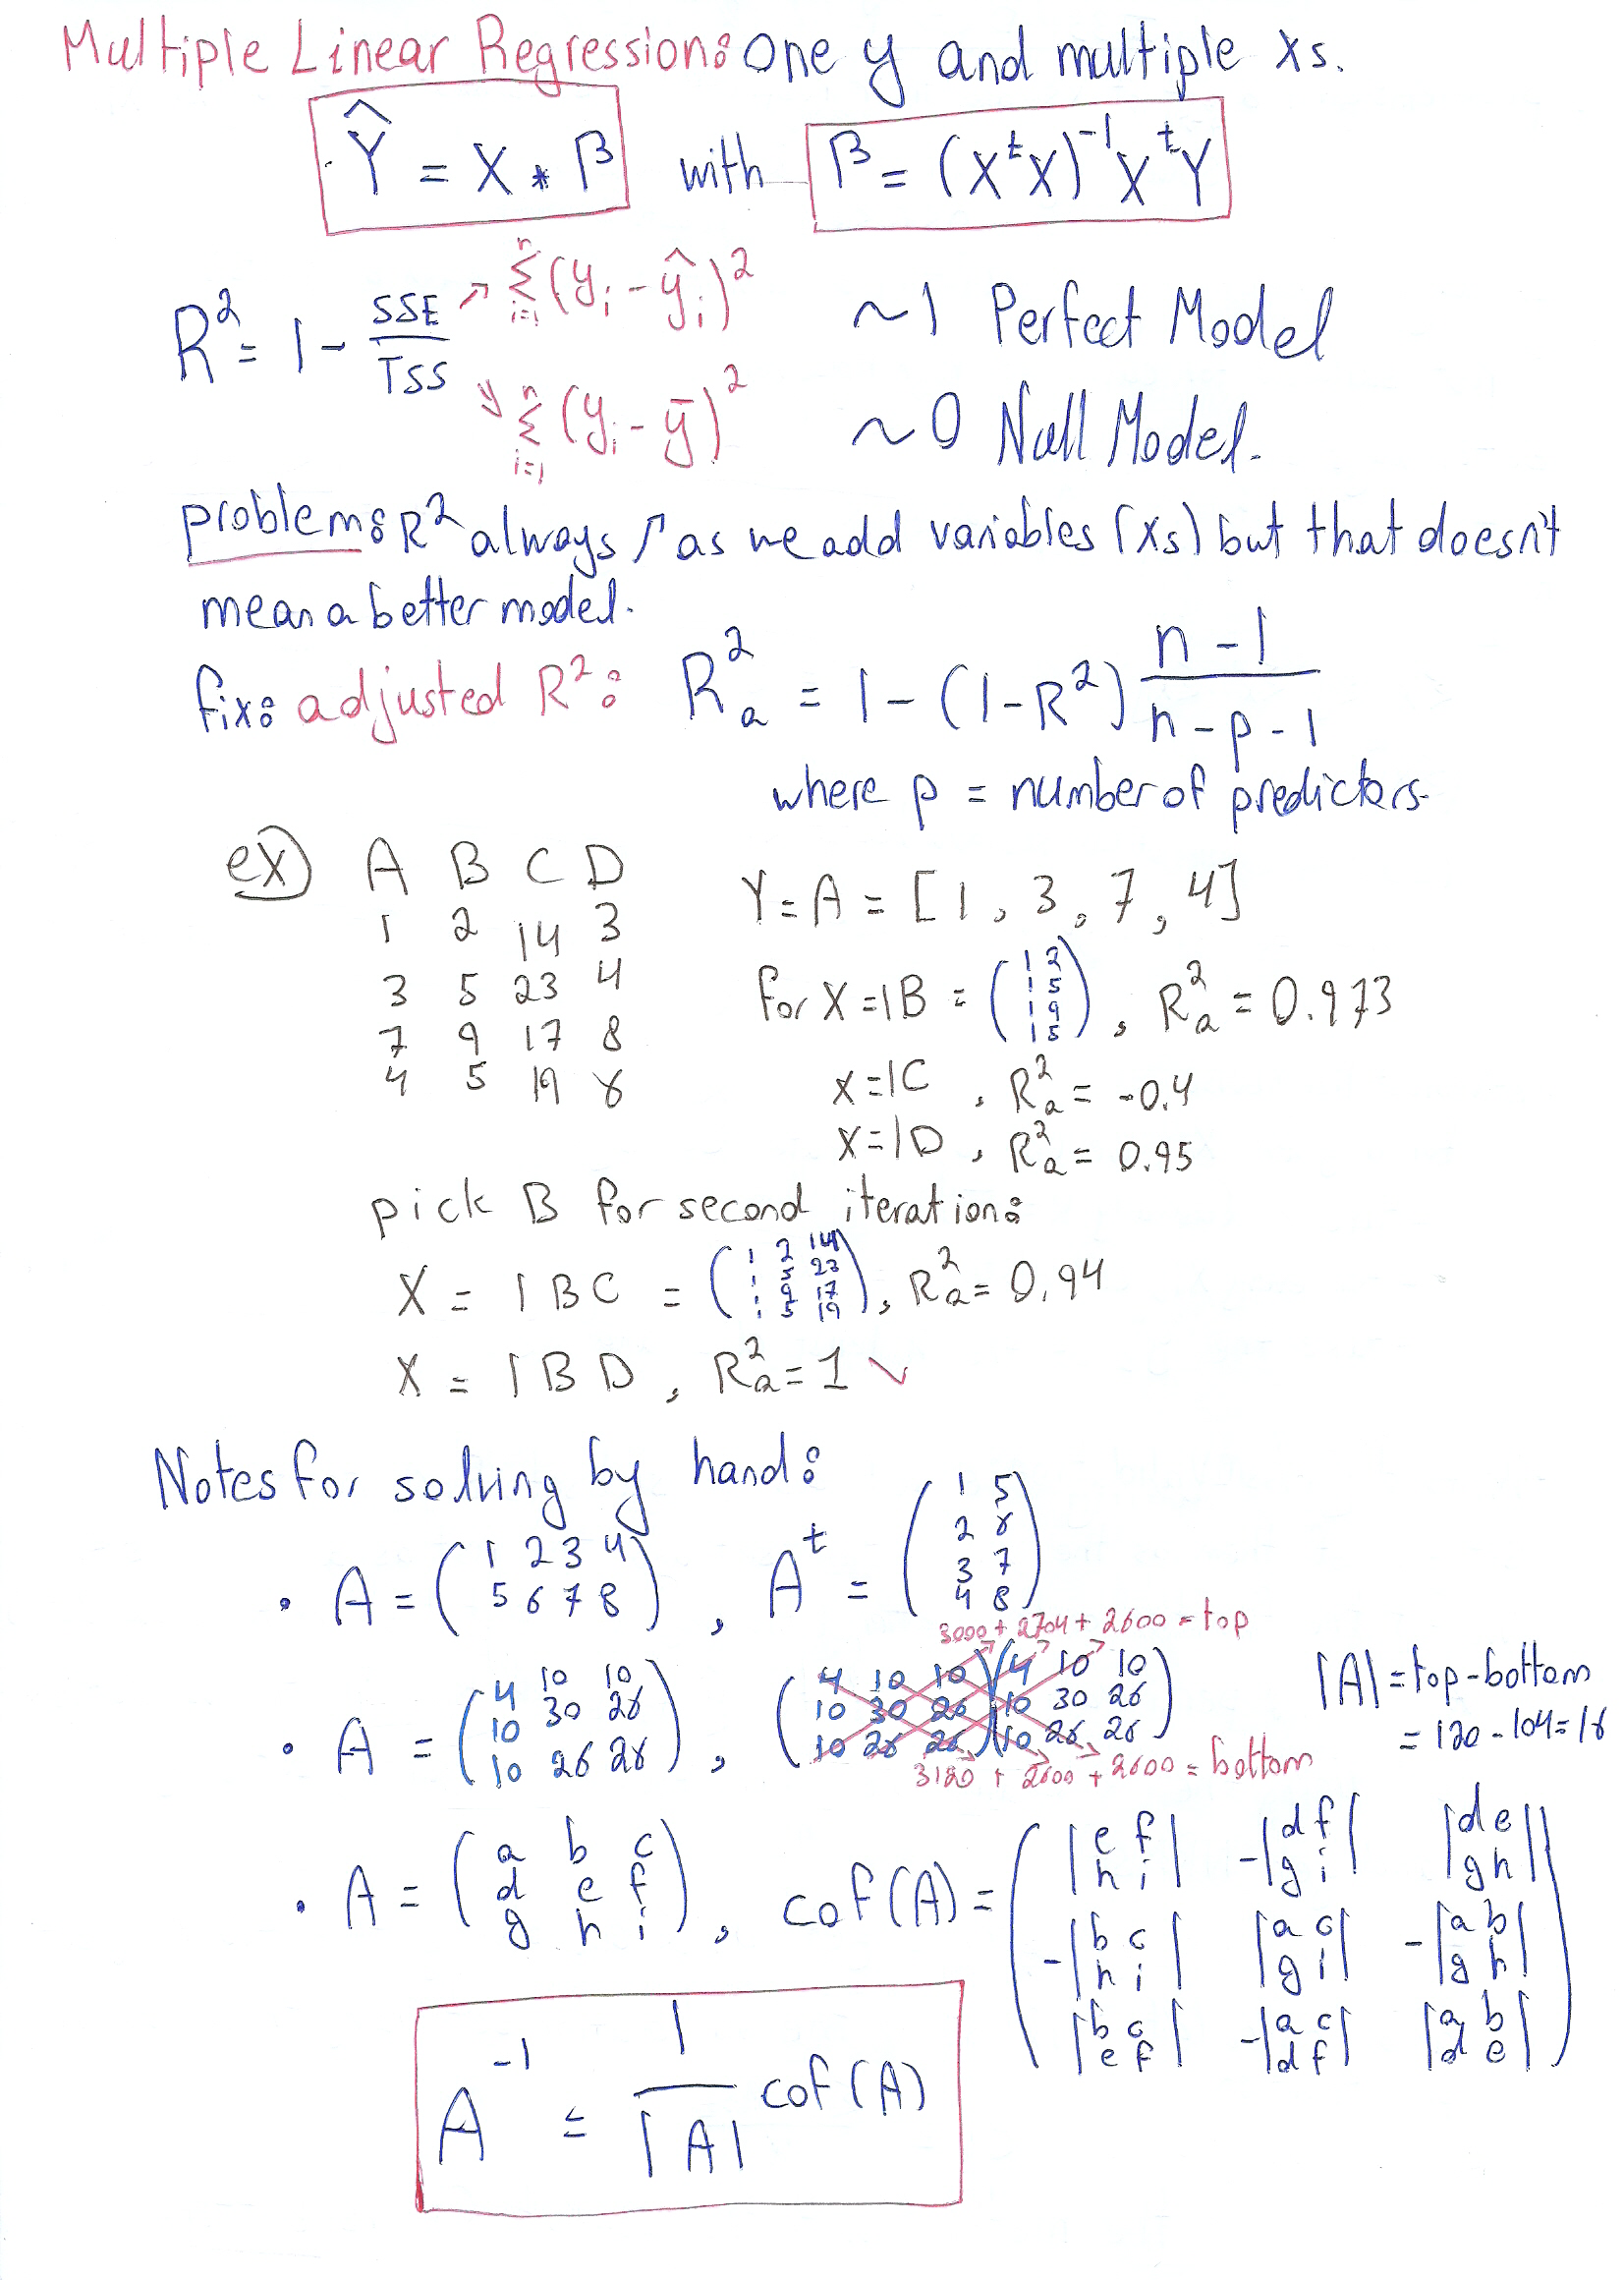 Multiple Linear Regression: One y and multiple xs.
Ŷ = X * β with β = (XᵗX)⁻¹XᵗY
R² = 1 - SSE/TSS
↗ Σᵢ₌₁ⁿ (yᵢ - ŷᵢ)² ~1 Perfect Model
↘ Σᵢ₌₁ⁿ (yᵢ - ȳ)² ~0 Null Model.
problem: R² always ↗ as we add variables (xs) but that doesn't
mean a better model.
fix: adjusted R²: R²ₐ = 1 - (1-R²) (n-1)/(n-p-1)
where p = number of predictors.
ex) A B C D
1 2 14 3
3 5 23 4
7 9 17 8
4 5 19 6
Y = A = [1, 3, 7, 4]
for X = 1B = (1 2
1 5
1 9
1 5), R²ₐ = 0.973
X = 1C, R²ₐ = -0.4
X = 1D, R²ₐ = 0.95
pick B for second iteration:
X = 1BC = (1 2 14
1 5 23
1 9 17
1 5 19), R²ₐ = 0.94
X = 1BD, R²ₐ = 1 ✓
Notes for solving by hand:
• A = (1 2 3 4
5 6 7 8), Aᵗ = (1 5
2 6
3 7
4 8)
3000 + 2704 + 2600 = top
• A = (4 10 10
10 30 26
10 26 26), (4 10 10)(4 10 10
10 30 26 10 30 26
10 26 26 10 26 26)
|A| = top - bottom
= 120 - 104 = 16
3120 + 2600 + 2600 = bottom
• A = (a b c
d e f
g h i), cof(A) = (|e f
h i| -|d f
g i| |d e
g h|
-|b c
h i| |a c
g i| -|a b
g h|
|b c
e f| -|a c
d f| |a b
d e|)
A⁻¹ = 1/|A| cof(A)